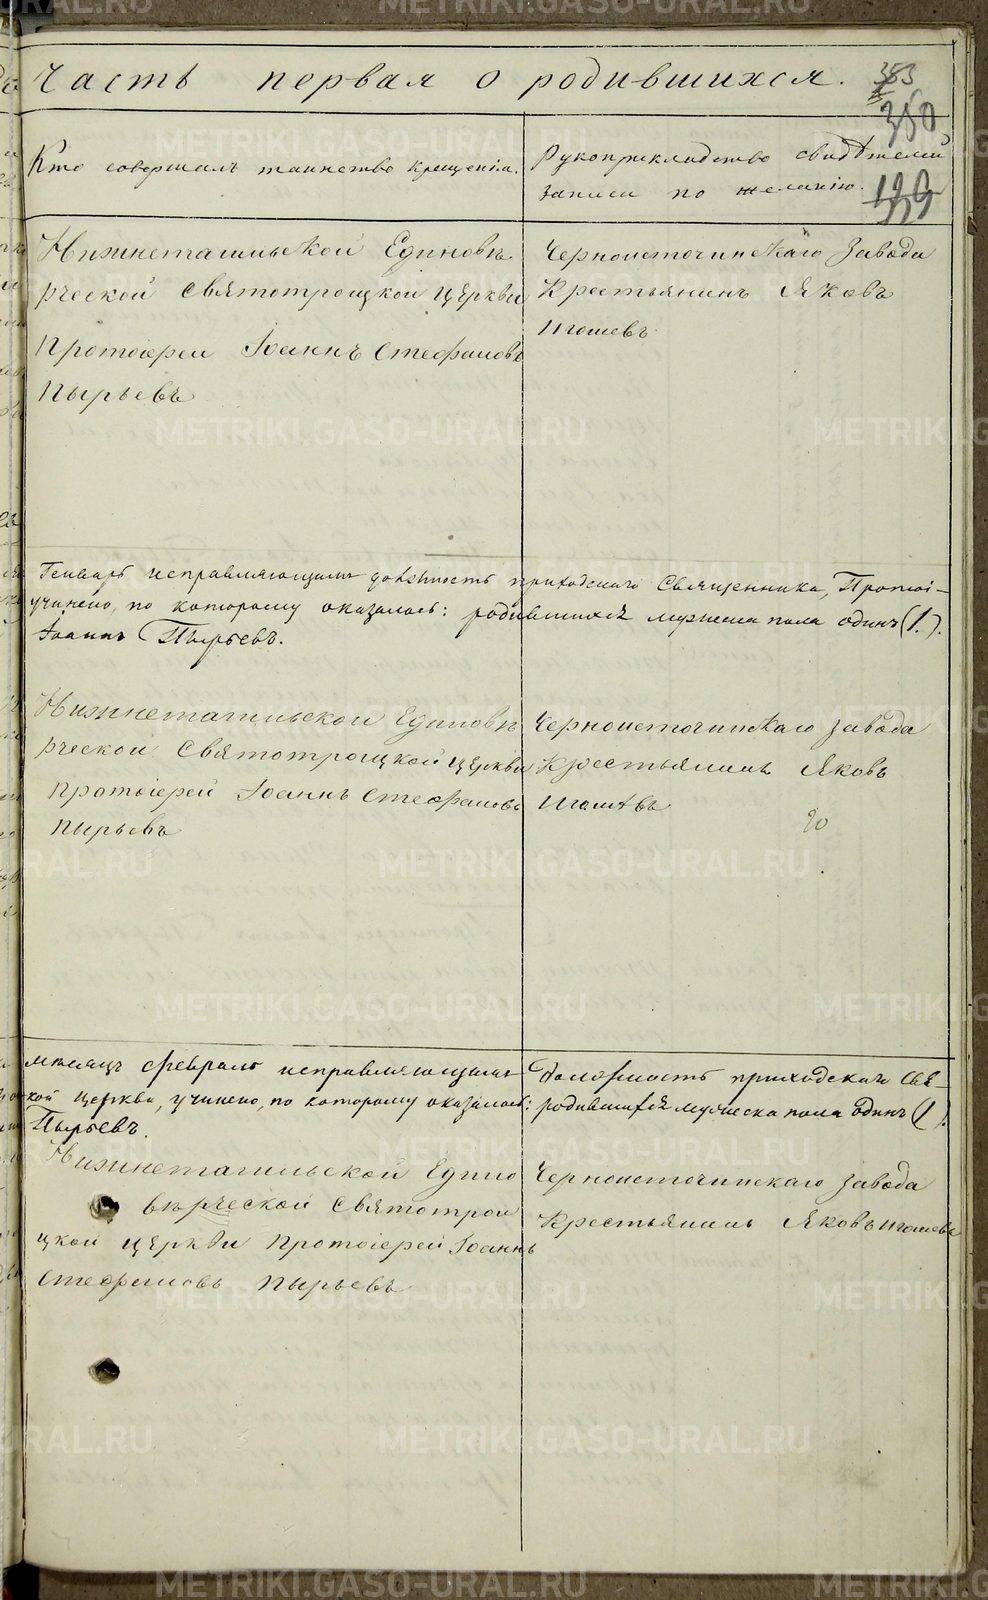 Часть первая о родившихся.
353
350
199
Кто совершалъ таинство крещенія.
Рукоприкладство свидѣтелей
записи по желанію.
Нижнетагильской Единовѣ
рческой Святотроицкой церкви
Протоіерей Іоаннъ Стефановъ
Пырьевъ
Черноисточинскаго завода
Крестьянинъ Яковъ
Игошевъ
Генварь исправляющимъ должность приходскаго Священника, Протоі-
учинено, по которому оказалось: родившихся мужеска пола одинъ (1.).
Іоаннъ Пырьевъ.
Нижнетагильской Единовѣ
рческой Святотроицкой церкви
Протоіерей Іоаннъ Стефановъ
Пырьевъ
Черноисточинскаго завода
Крестьянинъ Яковъ
Игошевъ
20
мѣсяцъ февраль исправляющимъ должность приходскаго Свя-
кой церкви, учинено, по которому оказалось: родившихся мужеска пола одинъ (1).
Пырьевъ.
Нижнетагильской Едино
вѣрческой Святотрои
цкой церкви Протоіерей Іоаннъ
Стефановъ Пырьевъ
Черноисточинскаго завода
Крестьянинъ Яковъ Игошевъ
METRIKI.GASO-URAL.RU